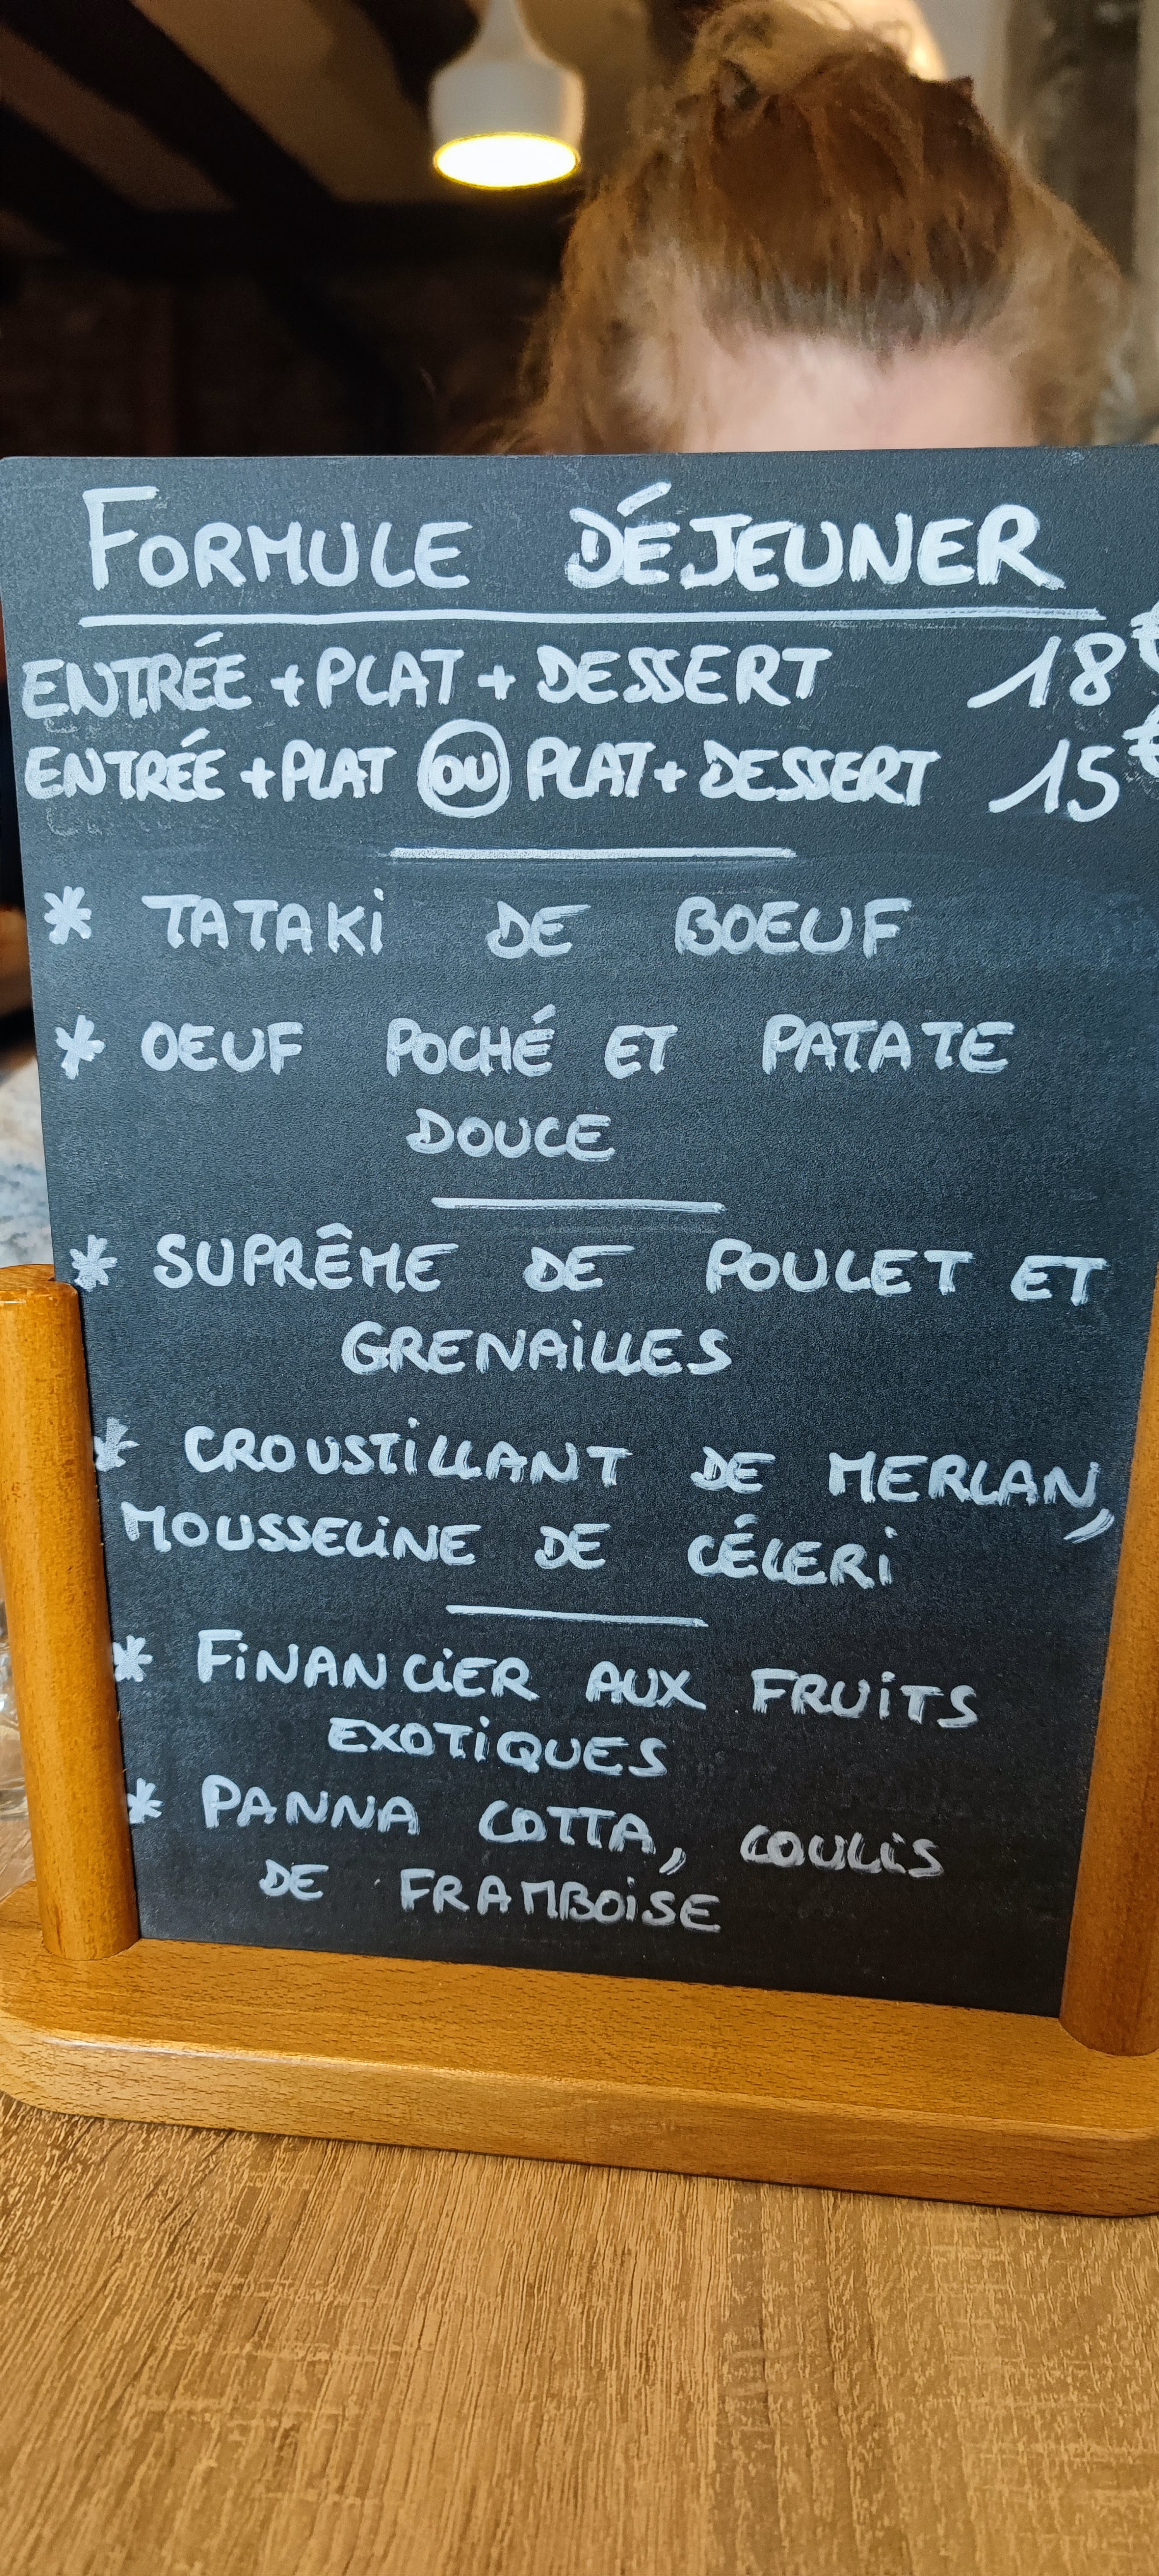 FORMULE DÉJEUNER
ENTRÉE + PLAT + DESSERT 18€
ENTRÉE + PLAT OU PLAT + DESSERT 15€
* TATAKi DE BOEUF
* OEUF POCHÉ ET PATATE
DOUCE
* SUPRÊME DE POULET ET
GRENAiLLES
* CROUSTiLLANT DE MERLAN,
MOUSSELiNE DE CÉLERi
* FiNANCiER AUX FRUiTS
EXOTiQUES
* PANNA COTTA, COULiS
DE FRAMBOiSE